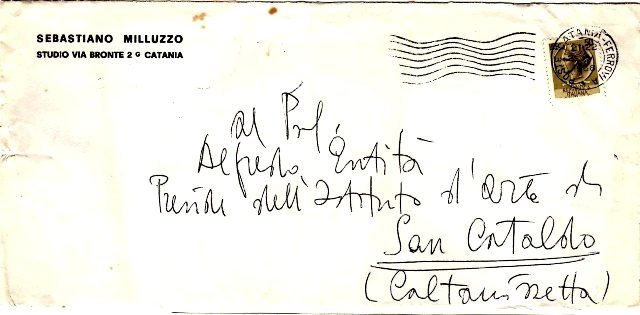 SEBASTIANO MILLUZZO
STUDIO VIA BRONTE 2 G CATANIA
CATANIA-FERROVIA
al Prof.
Alfredo Entità
Preside dell'Istituto d'Arte di
San Cataldo
(Caltanissetta)